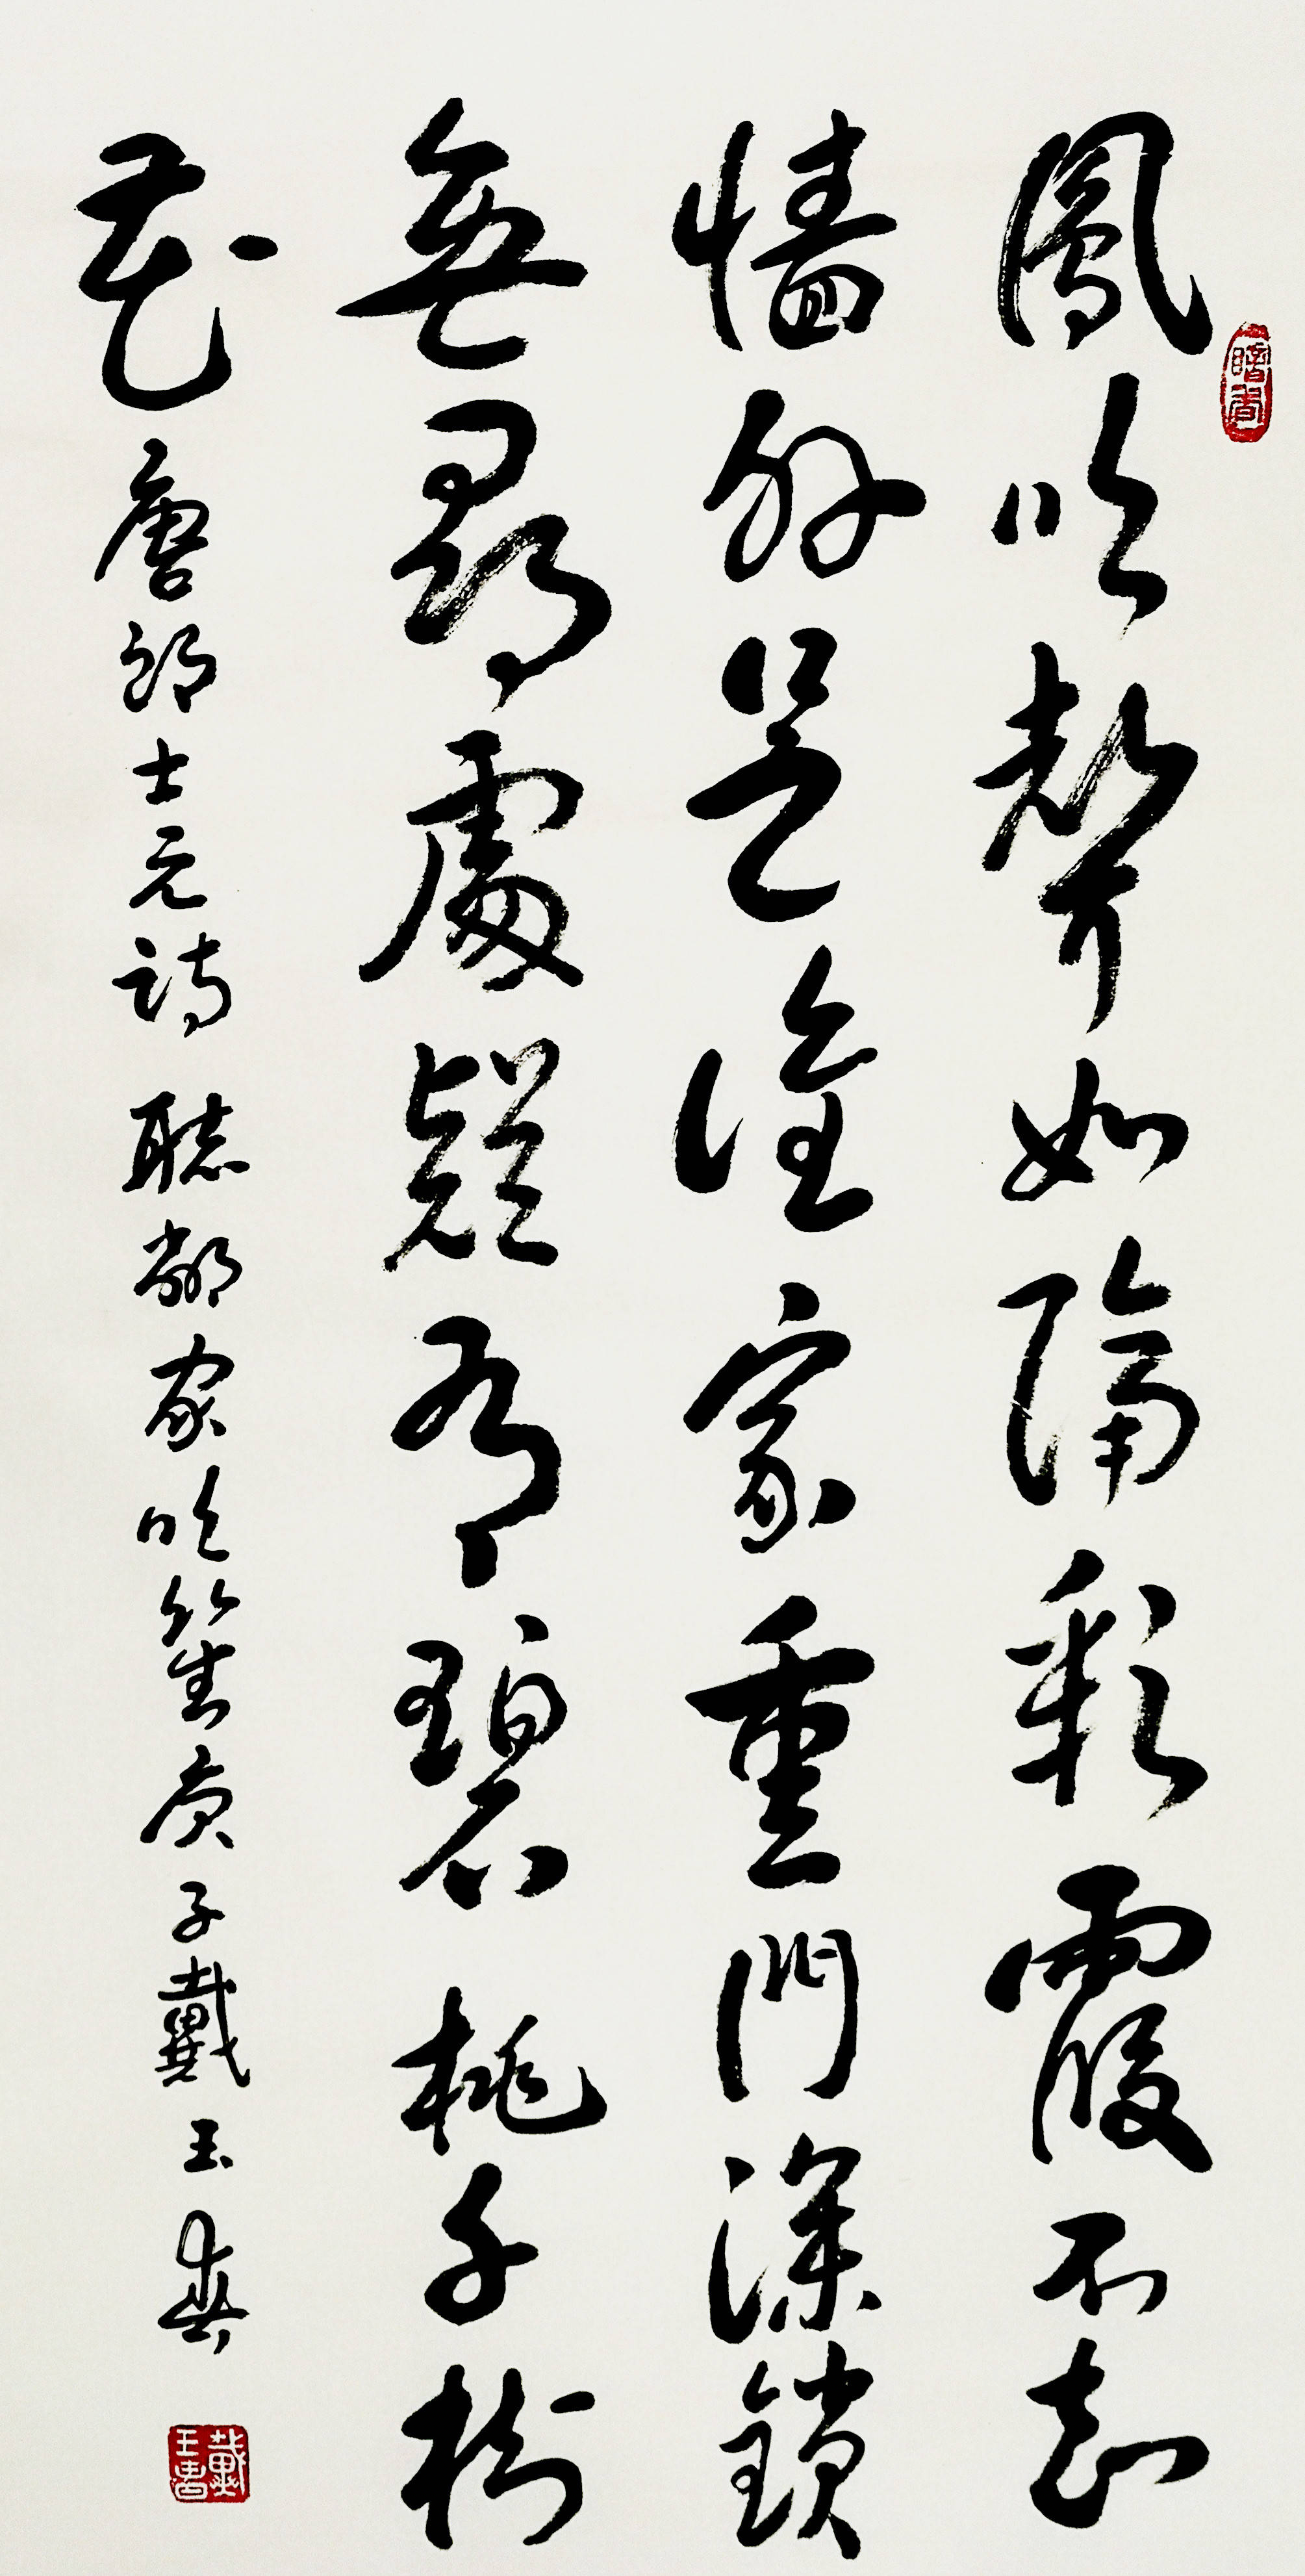 鳳吹聲如隔彩霞不知
牆外是誰家重門深鎖
無尋處疑有碧桃千樹
花 唐郎士元詩 聽鄰家吹笙 庚子戴玉書
戴玉書